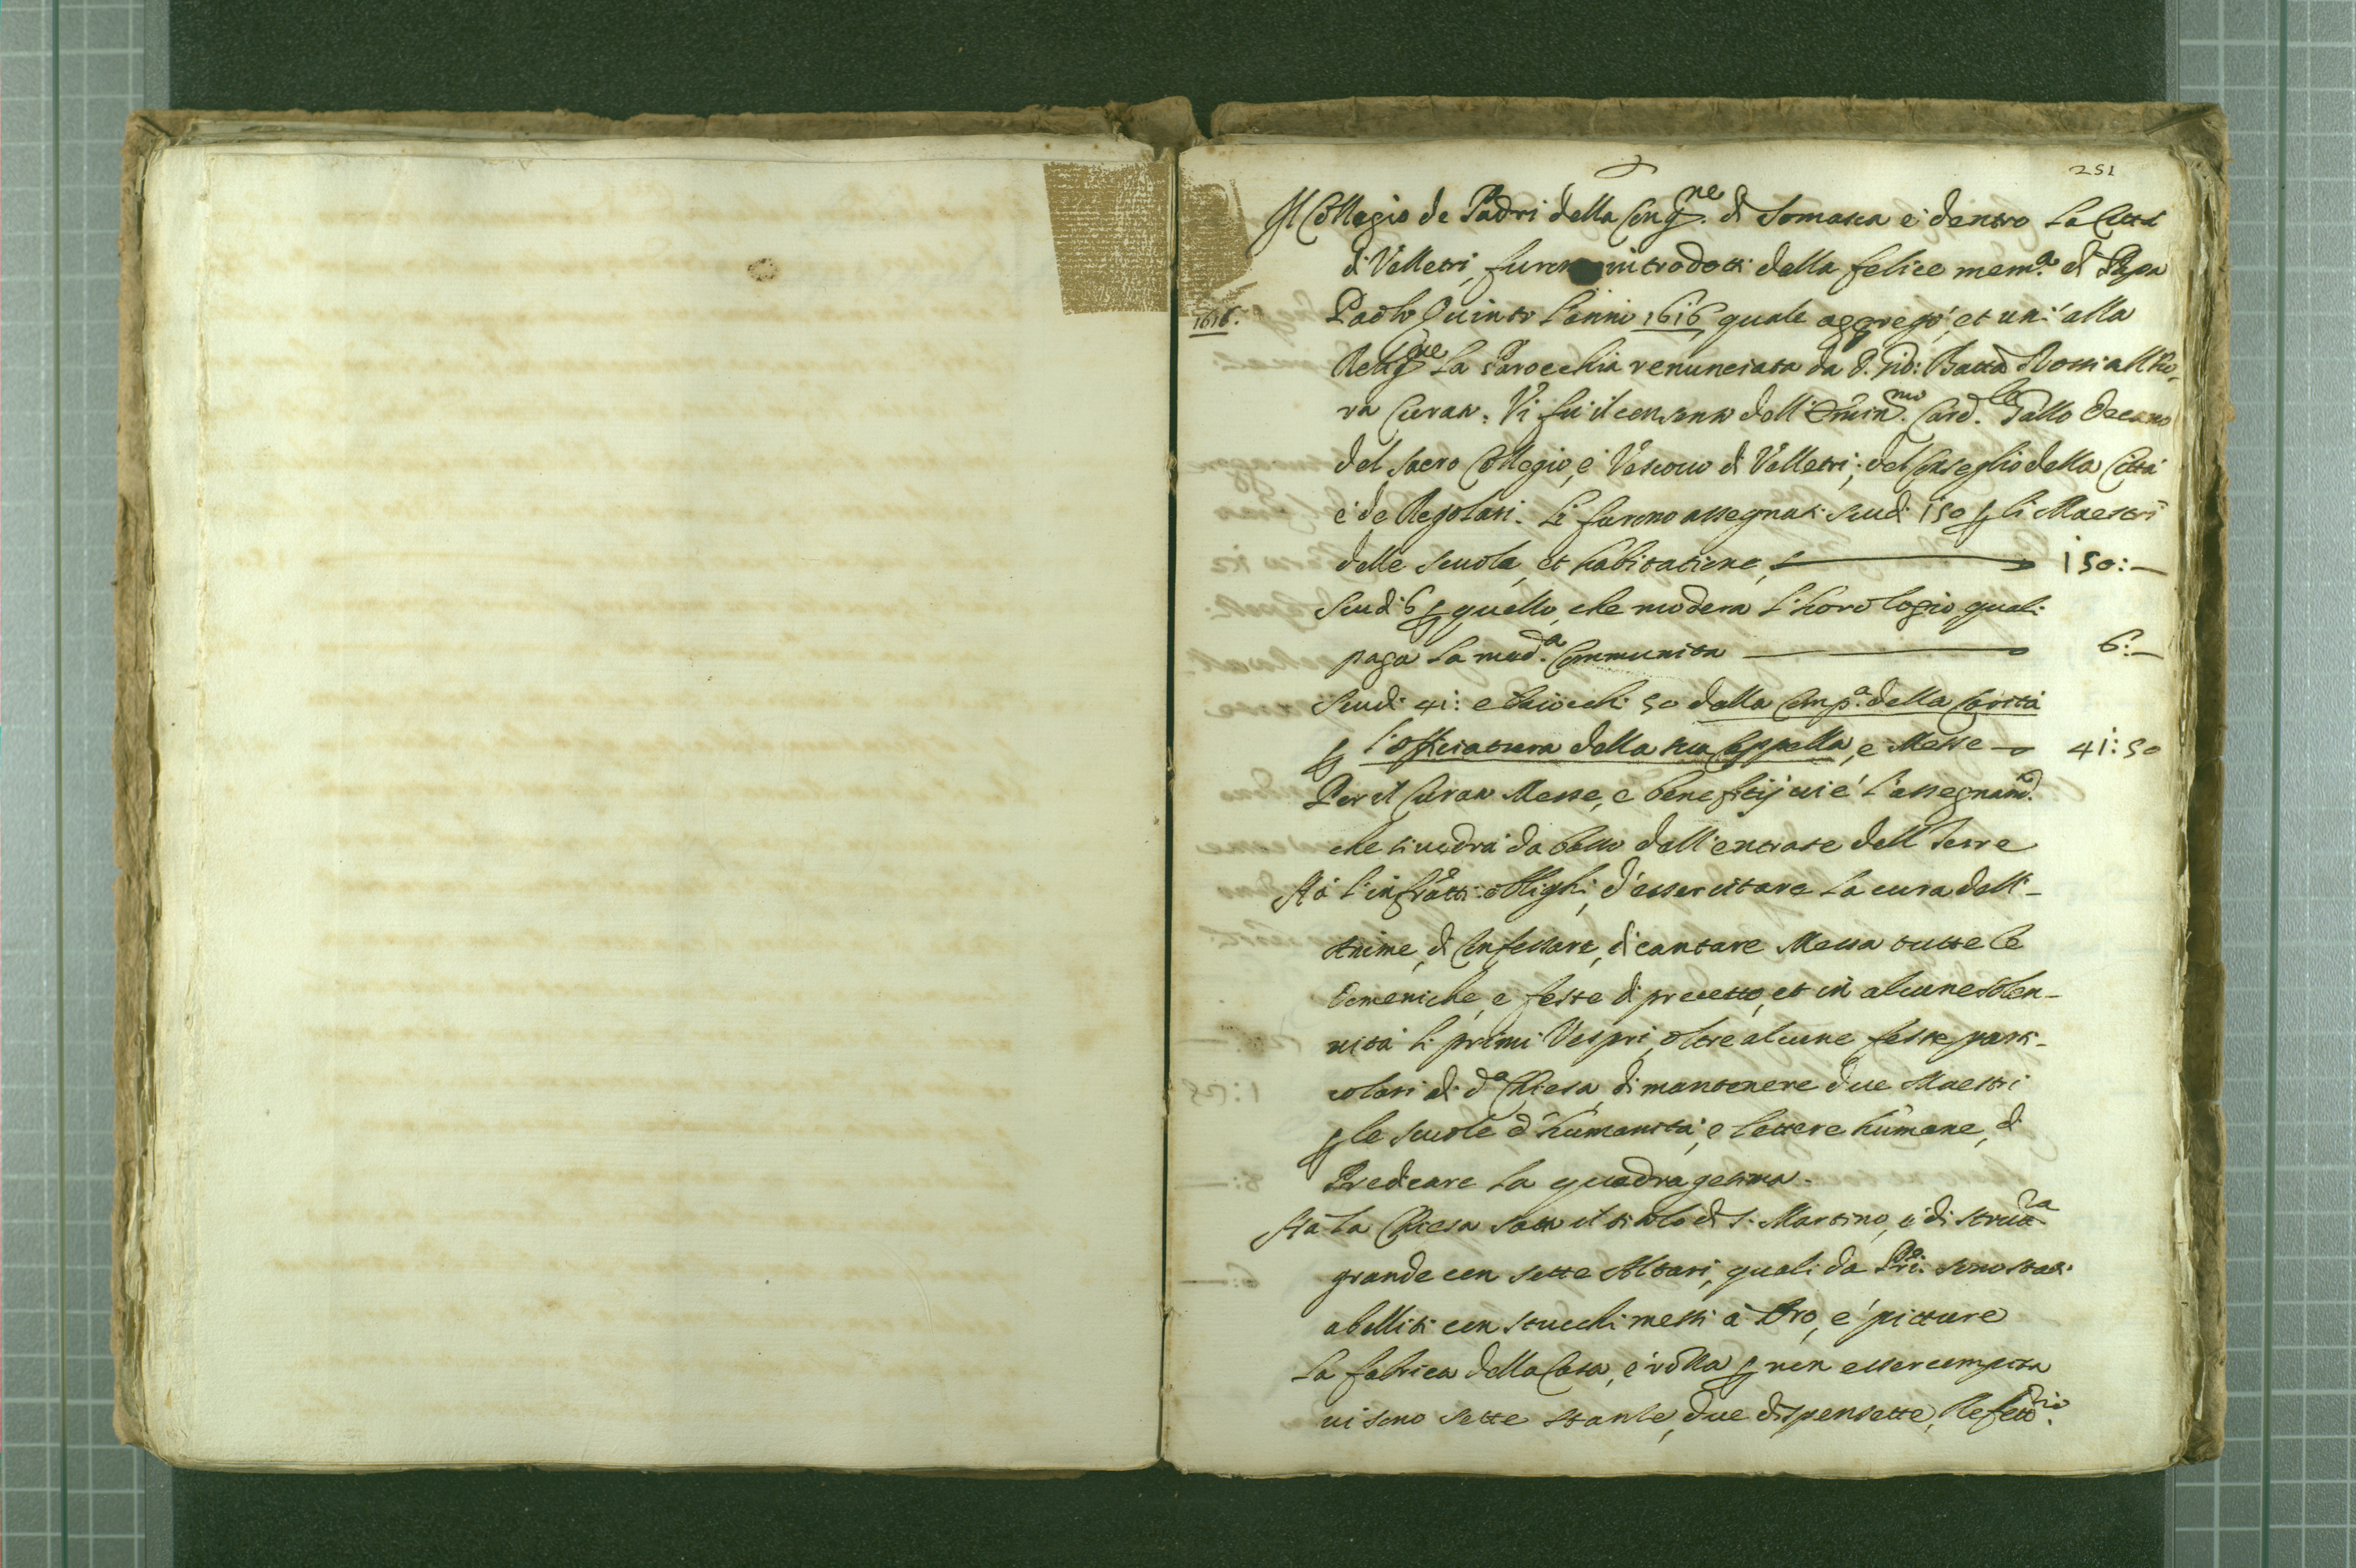 251
Il Collegio de Padri della Cong.ne di Somasca è dentro la Città
di Velletri, furono introdotti della felice mem.a di Papa
1616. Paolo Quinto l'anno 1616 quale aggregò, et unì alla
Relig.ne la Parocchia renunciata da D. Gio: Batta Rossi allho-
ra Curato. Vi fu il consenso dell'Emin.mo Card.le Gallo Decano
del Sacro Collegio, e Vescovo di Velletri, del Conseglio della Città
e de Regolari. Li furono assegnati scudi 150 p li Maestri
delle scuola, et habitatione, 150:—
Scudi 6 p quello, che modera l'horologio quali
paga la med.a Communita 6:—
Scudi 41: e baiocchi 50 dalla Comp.a della Carità
p l'offitiatura della sua Cappella, e Messe 41:50
Per il Curato Messe, e benefitij vi è l'assegnam.
che si vedrà da basso dell'entrate dell Terre
Hà l'infratti oblighi, d'essercitare la cura dell'-
Anime, di Confessare, di cantare Messa tutte le
Domeniche, e feste di precetto, et in alcune solen-
nità li primi Vespri, oltre alcune feste parti-
colari di d.a Chiesa, di mantenere due Maestri
p le scuole d'humanità, e lettere humane, di
Predicare la quadragesima.
Hà la Chiesa sotto il titolo di S. Martino, è di strutt.ra
grande con sette Altari, quali da P.ri sono stati
abelliti con stucchi messi à Oro, e pitture
La fabrica della Casa, è rolla p non esser compita
vi sono sette stanze, due dispensette, Refett.rio